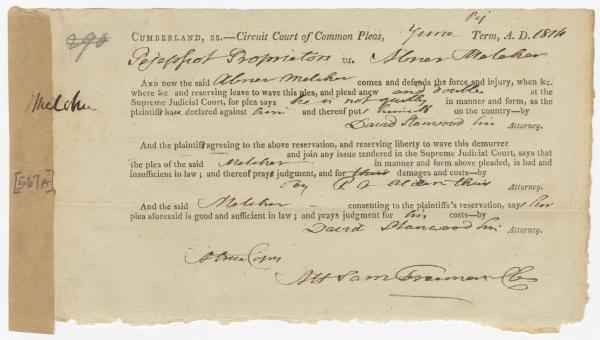 290
Melcher
[567A]
Pej
CUMBERLAND, ss.—Circuit Court of Common Pleas, June Term, A. D. 1814
Pejepscot Proprietors vs. Abner Melcher
AND now the said Abner Melcher comes and defends the force and injury, when &c.
where &c. and reserving leave to wave this plea, and plead anew and double at the
Supreme Judicial Court, for plea says he is not guilty in manner and form, as the
plaintiffs have declared against him and thereof puts himself on the country—by
David Stanwood his Attorney.
And the plaintiffs agreeing to the above reservation, and reserving liberty to wave this demurrer
and join any issue tendered in the Supreme Judicial Court, says that
the plea of the said Melcher in manner and form above pleaded, is bad and
insufficient in law; and thereof prays judgment, and for their damages and costs—by
by P O Alden their Attorney.
And the said Melcher consenting to the plaintiffs's reservation, says his
plea aforesaid is good and sufficient in law; and prays judgment for his costs—by
David Stanwood his Attorney.
A true Copy
Att Sam Freeman Cle